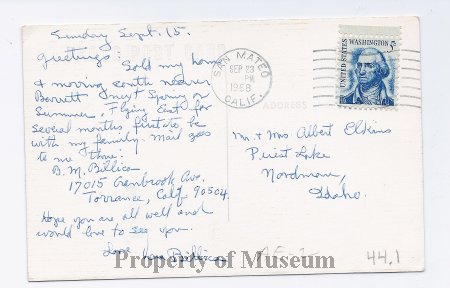 Sunday Sept. 15.
Greetings Sold my home
& moving south nearer
Barrett next Spring or
Summer. Flying East for
several months, first to be
with my family. Mail goes
to me thru:
B. M. Billica
17015 Cranbrook Ave.
Torrance, Calif. 90504.
Hope you are all well and
would love to see you.
Love
SAN MATEO
SEP 23
PM
1968
CALIF.
ADDRESS
UNITED STATES
WASHINGTON 5c
Mr & Mrs Albert Elkins
Priest Lake
Nordman,
Idaho.
44.1
Property of Museum